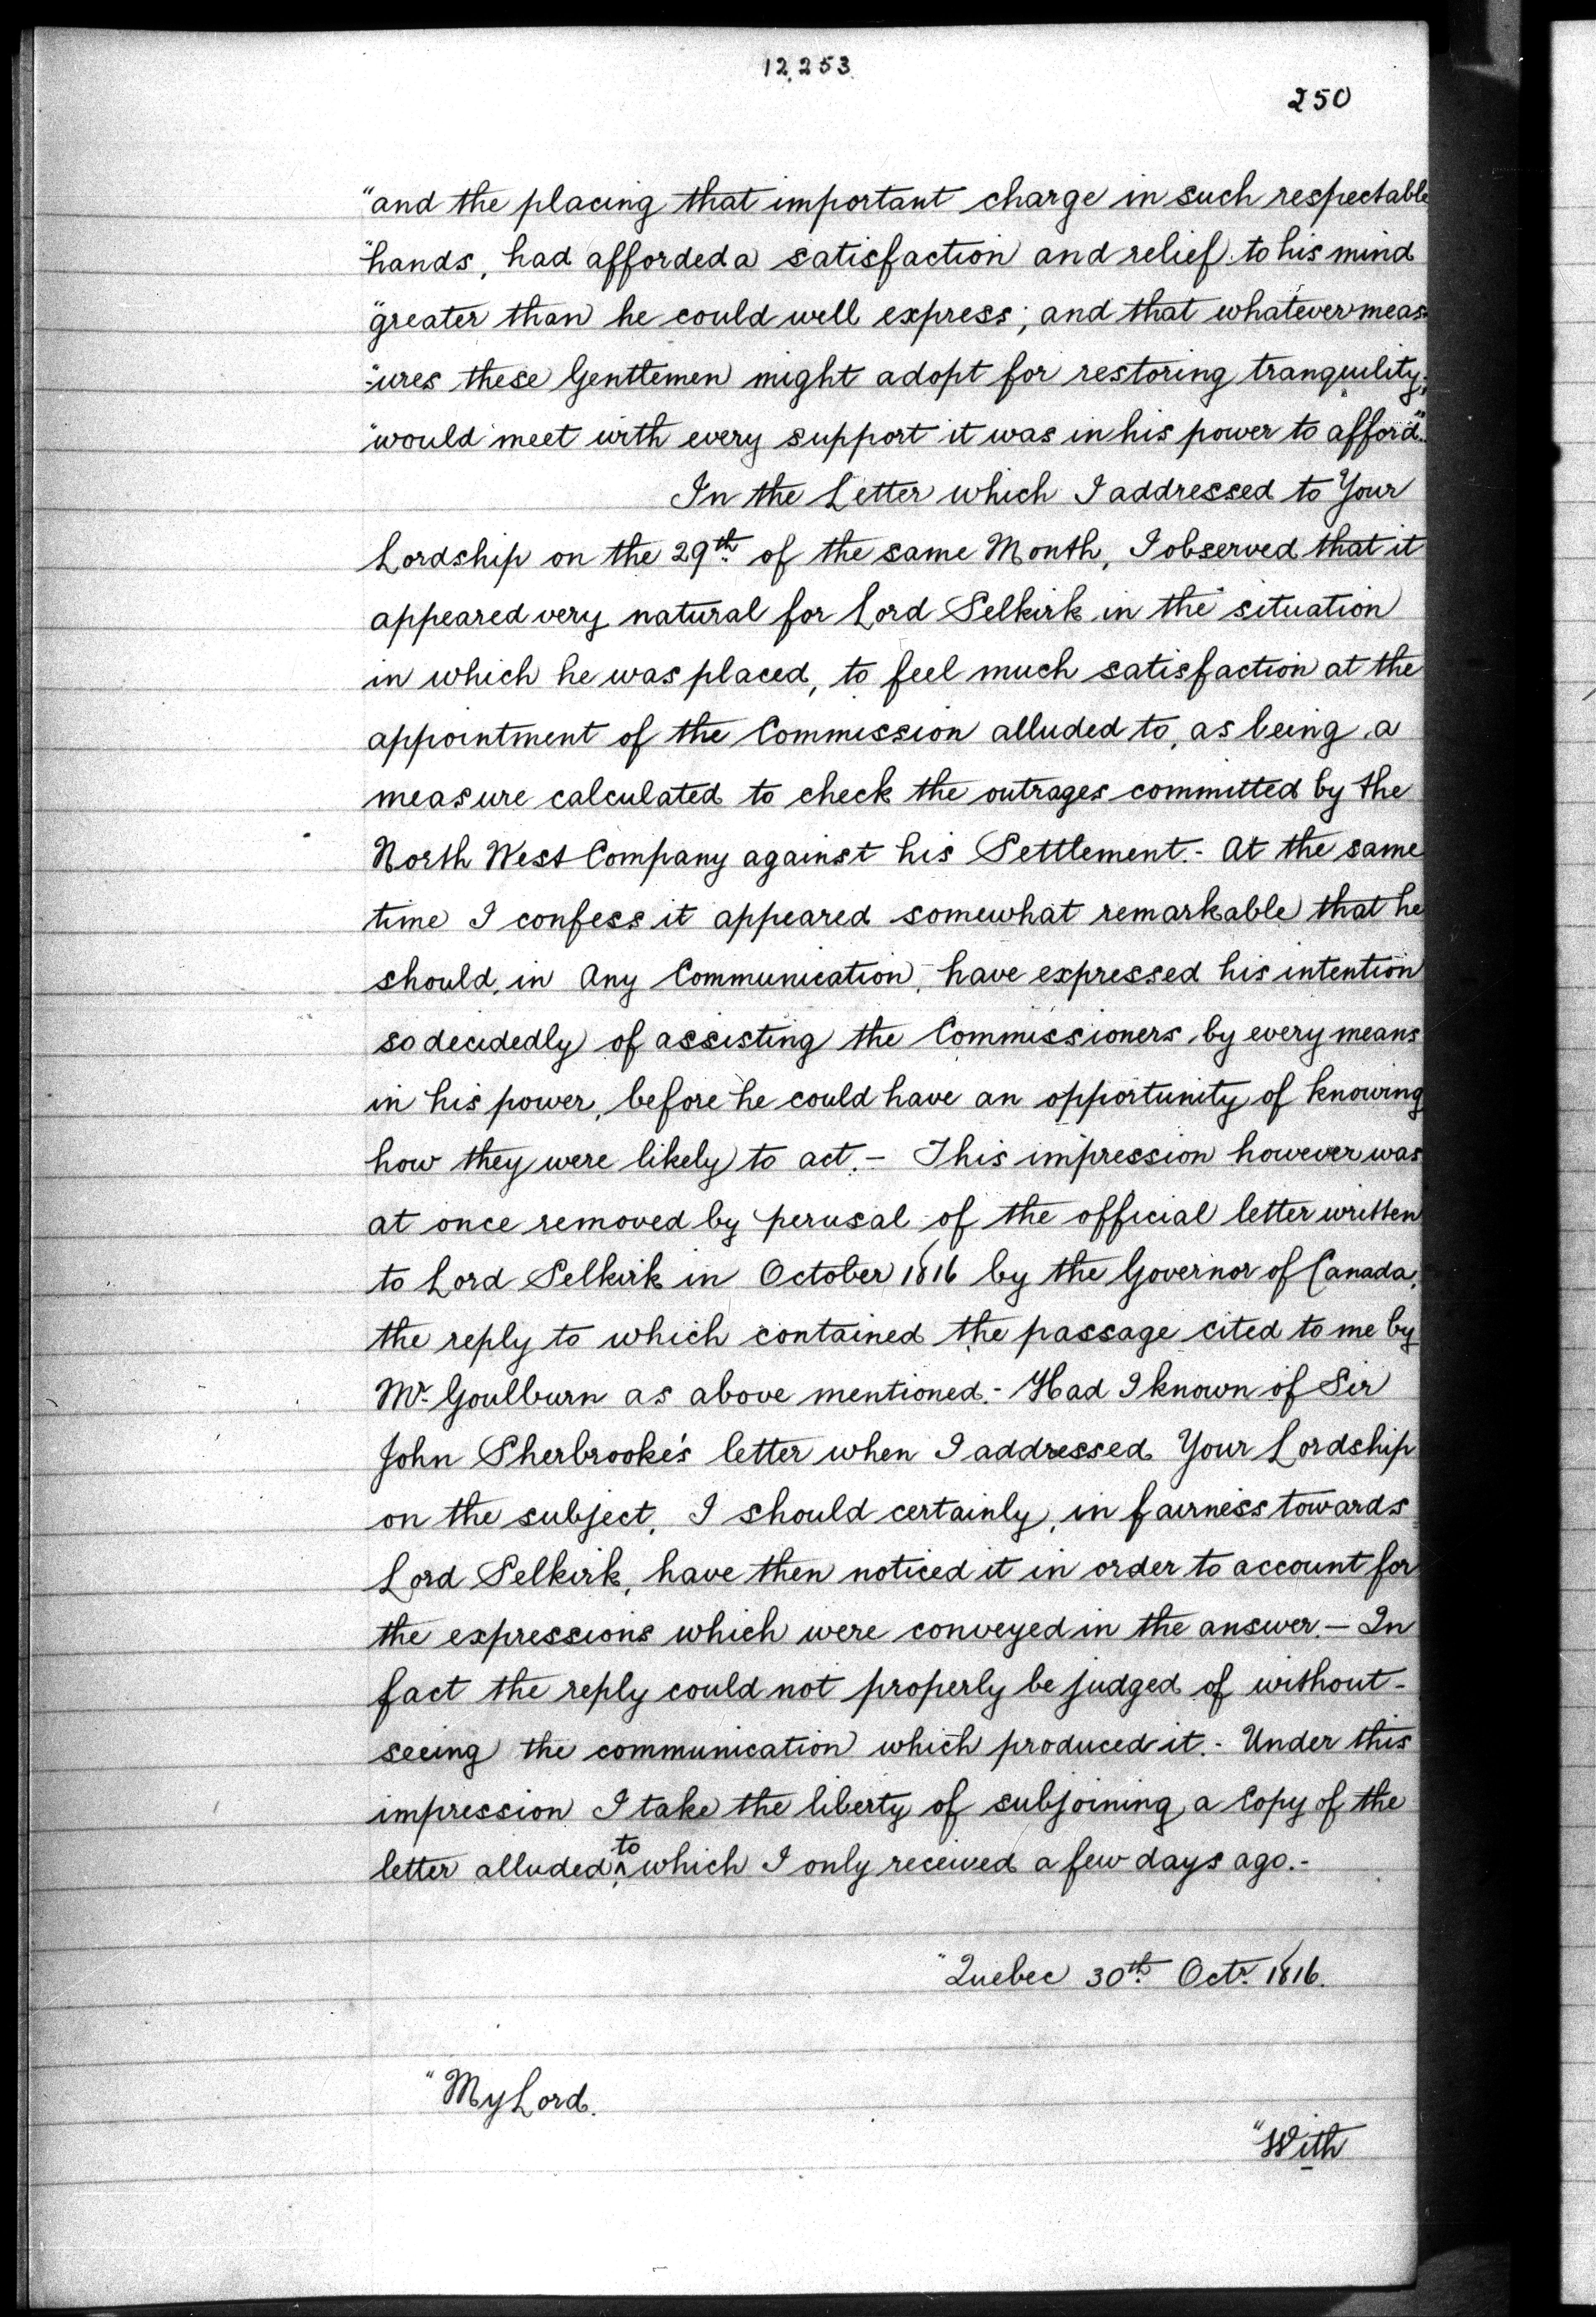 12,253
250
"and the placing that important charge in such respectable
"hands, had afforded a satisfaction and relief to his mind
"greater than he could well express; and that whatever meas-
"ures these Gentlemen might adopt for restoring tranquility,
"would meet with every support it was in his power to afford."
In the Letter which I addressed to Your
Lordship on the 29th of the same Month, I observed that it
appeared very natural for Lord Selkirk in the situation
in which he was placed, to feel much satisfaction at the
appointment of the Commission alluded to, as being a
measure calculated to check the outrages committed by the
North West Company against his Settlement.- At the same
time I confess it appeared somewhat remarkable that he
should, in any Communication, have expressed his intention
so decidedly of assisting the Commissioners by every means
in his power, before he could have an opportunity of knowing
how they were likely to act.- This impression however was
at once removed by perusal of the official letter written
to Lord Selkirk in October 1816 by the Governor of Canada,
the reply to which contained the passage cited to me by
Mr. Goulburn as above mentioned.- Had I known of Sir
John Sherbrooke's letter when I addressed Your Lordship
on the subject, I should certainly, in fairness towards
Lord Selkirk, have then noticed it in order to account for
the expressions which were conveyed in the answer.- In
fact the reply could not properly be judged of without-
seeing the communication which produced it.- Under this
impression I take the liberty of subjoining a Copy of the
letter alluded to which I only received a few days ago.-
"Quebec 30th Octr. 1816.
"My Lord.
"With